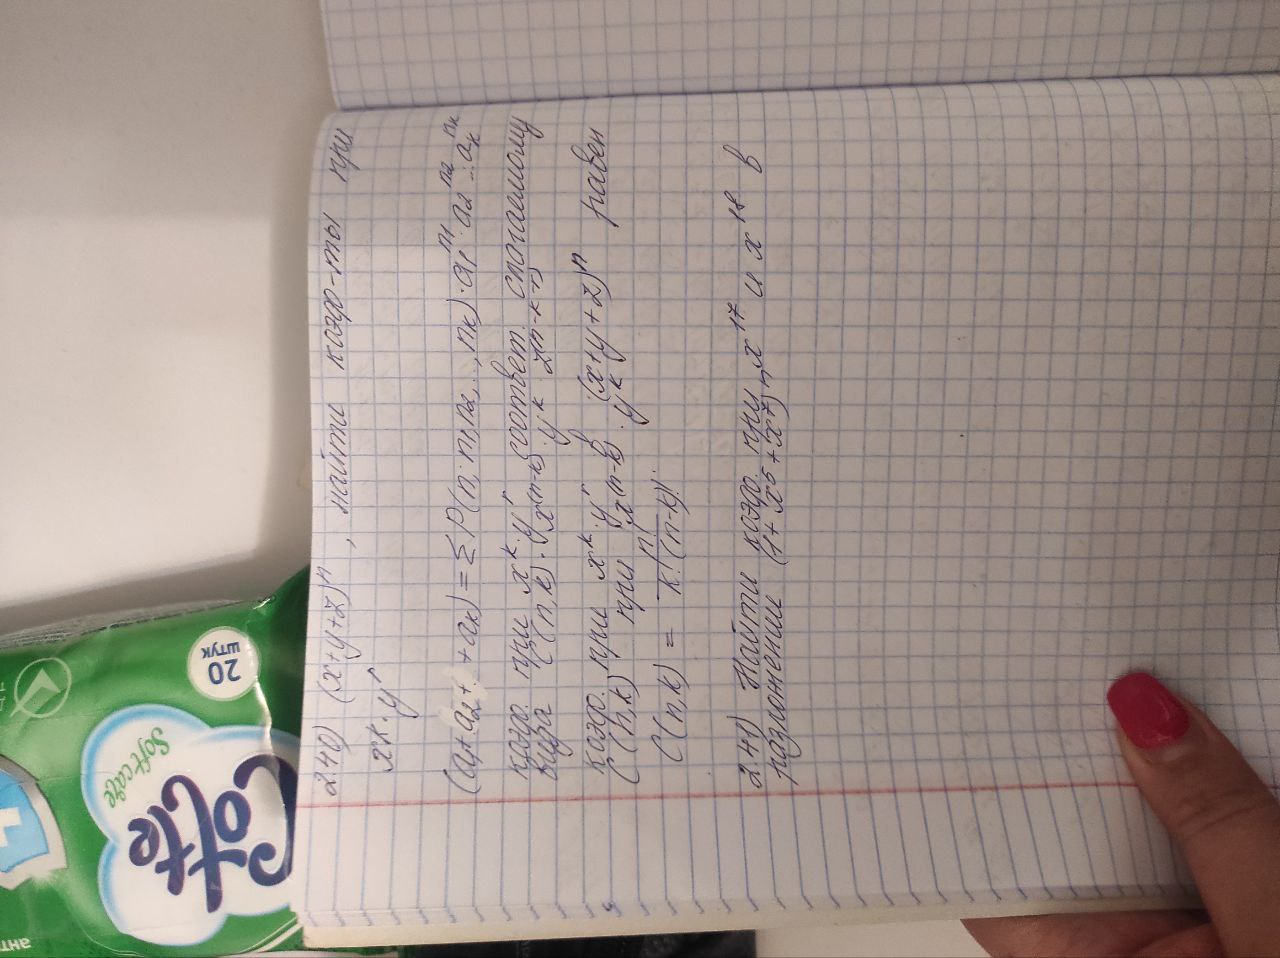 240) (x+y+z)ⁿ, найти коэф-ты при
xᵏ·yʳ
(a₁+a₂+ +aₖ) = ΣP(n; n₁,n₂,..., nₖ)·a₁ⁿ¹·a₂ⁿ²...aₖⁿᵏ
коэф. при xᵏ·yʳ соответ. слагаемому
вида C(n,k)·x⁽ⁿ⁻ᵏ⁾·yᵏ·z⁽ⁿ⁻ᵏ⁻ʳ⁾
коэф. при xᵏ·yʳ в (x+y+z)ⁿ равен
C(n,k) при x⁽ⁿ⁻ᵏ⁾·yᵏ
C(n,k) = n!/k!(n-k)!
241) Найти коэф. при x¹⁷ и x¹⁸ в
разложении (1+x⁵+x⁷)ⁿ
Cotte
Softcare
20
штук
анти